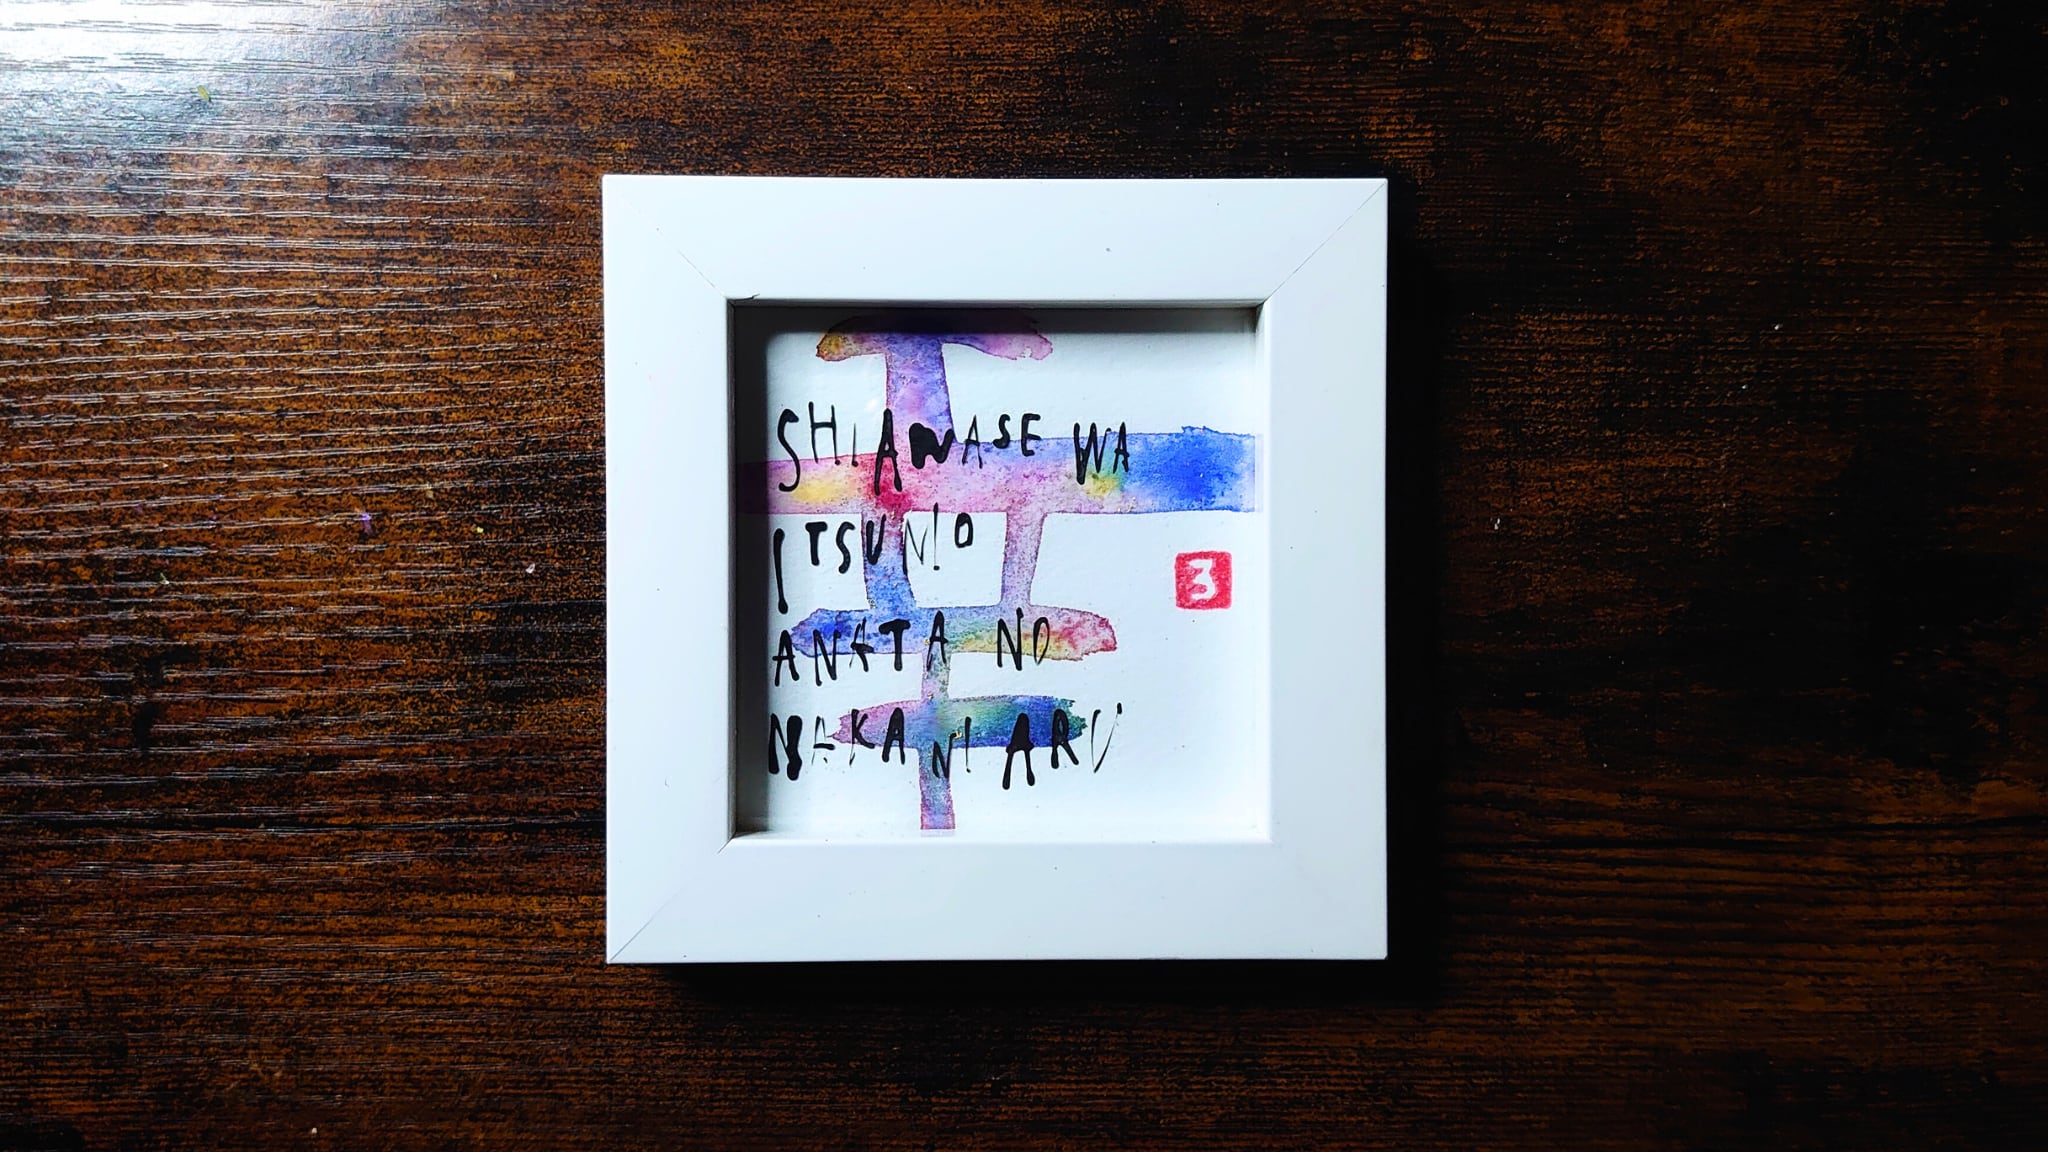 幸
SHIAWASE WA
ITSUMO
3
ANATA NO
NAKA NI ARU